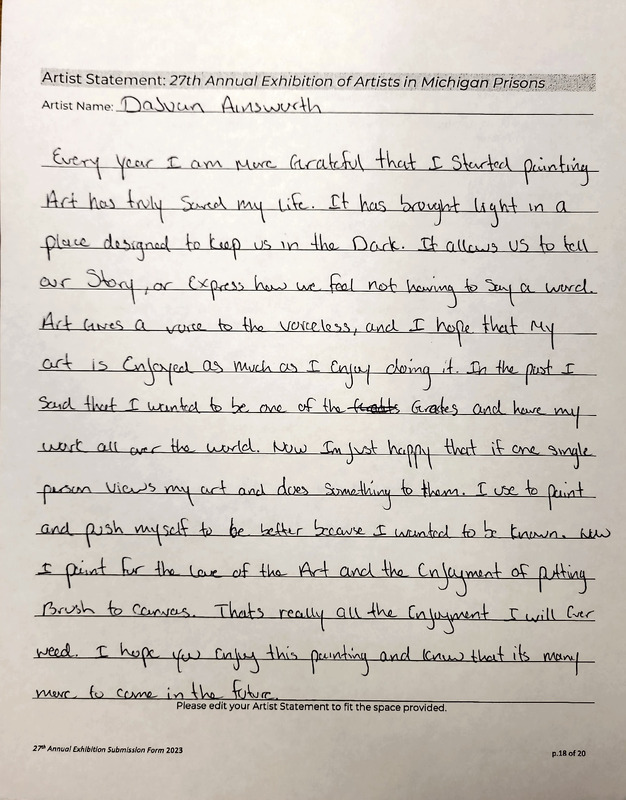 Artist Statement: 27th Annual Exhibition of Artists in Michigan Prisons
Artist Name: DaJuan Ainsworth
Every year I am more Grateful that I Started painting
Art has truly Saved my life. It has brought light in a
place designed to keep us in the Dark. It allows us to tell
our Story, or Express how we feel not having to Say a word.
Art Gives a voice to the voiceless, and I hope that My
art is Enjoyed as much as I Enjoy doing it. In the past I
Said that I wanted to be one of the Greates and have my
work all over the world. Now Im just happy that if one single
person views my art and does Something to them. I use to paint
and push myself to be better because I wanted to be known. Now
I paint for the love of the Art and the Enjoyment of putting
Brush to canvas. Thats really all the Enjoyment I will Ever
need. I hope you Enjoy this painting and know that its many
more to come in the future.
Please edit your Artist Statement to fit the space provided.
27th Annual Exhibition Submission Form 2023
p.18 of 20